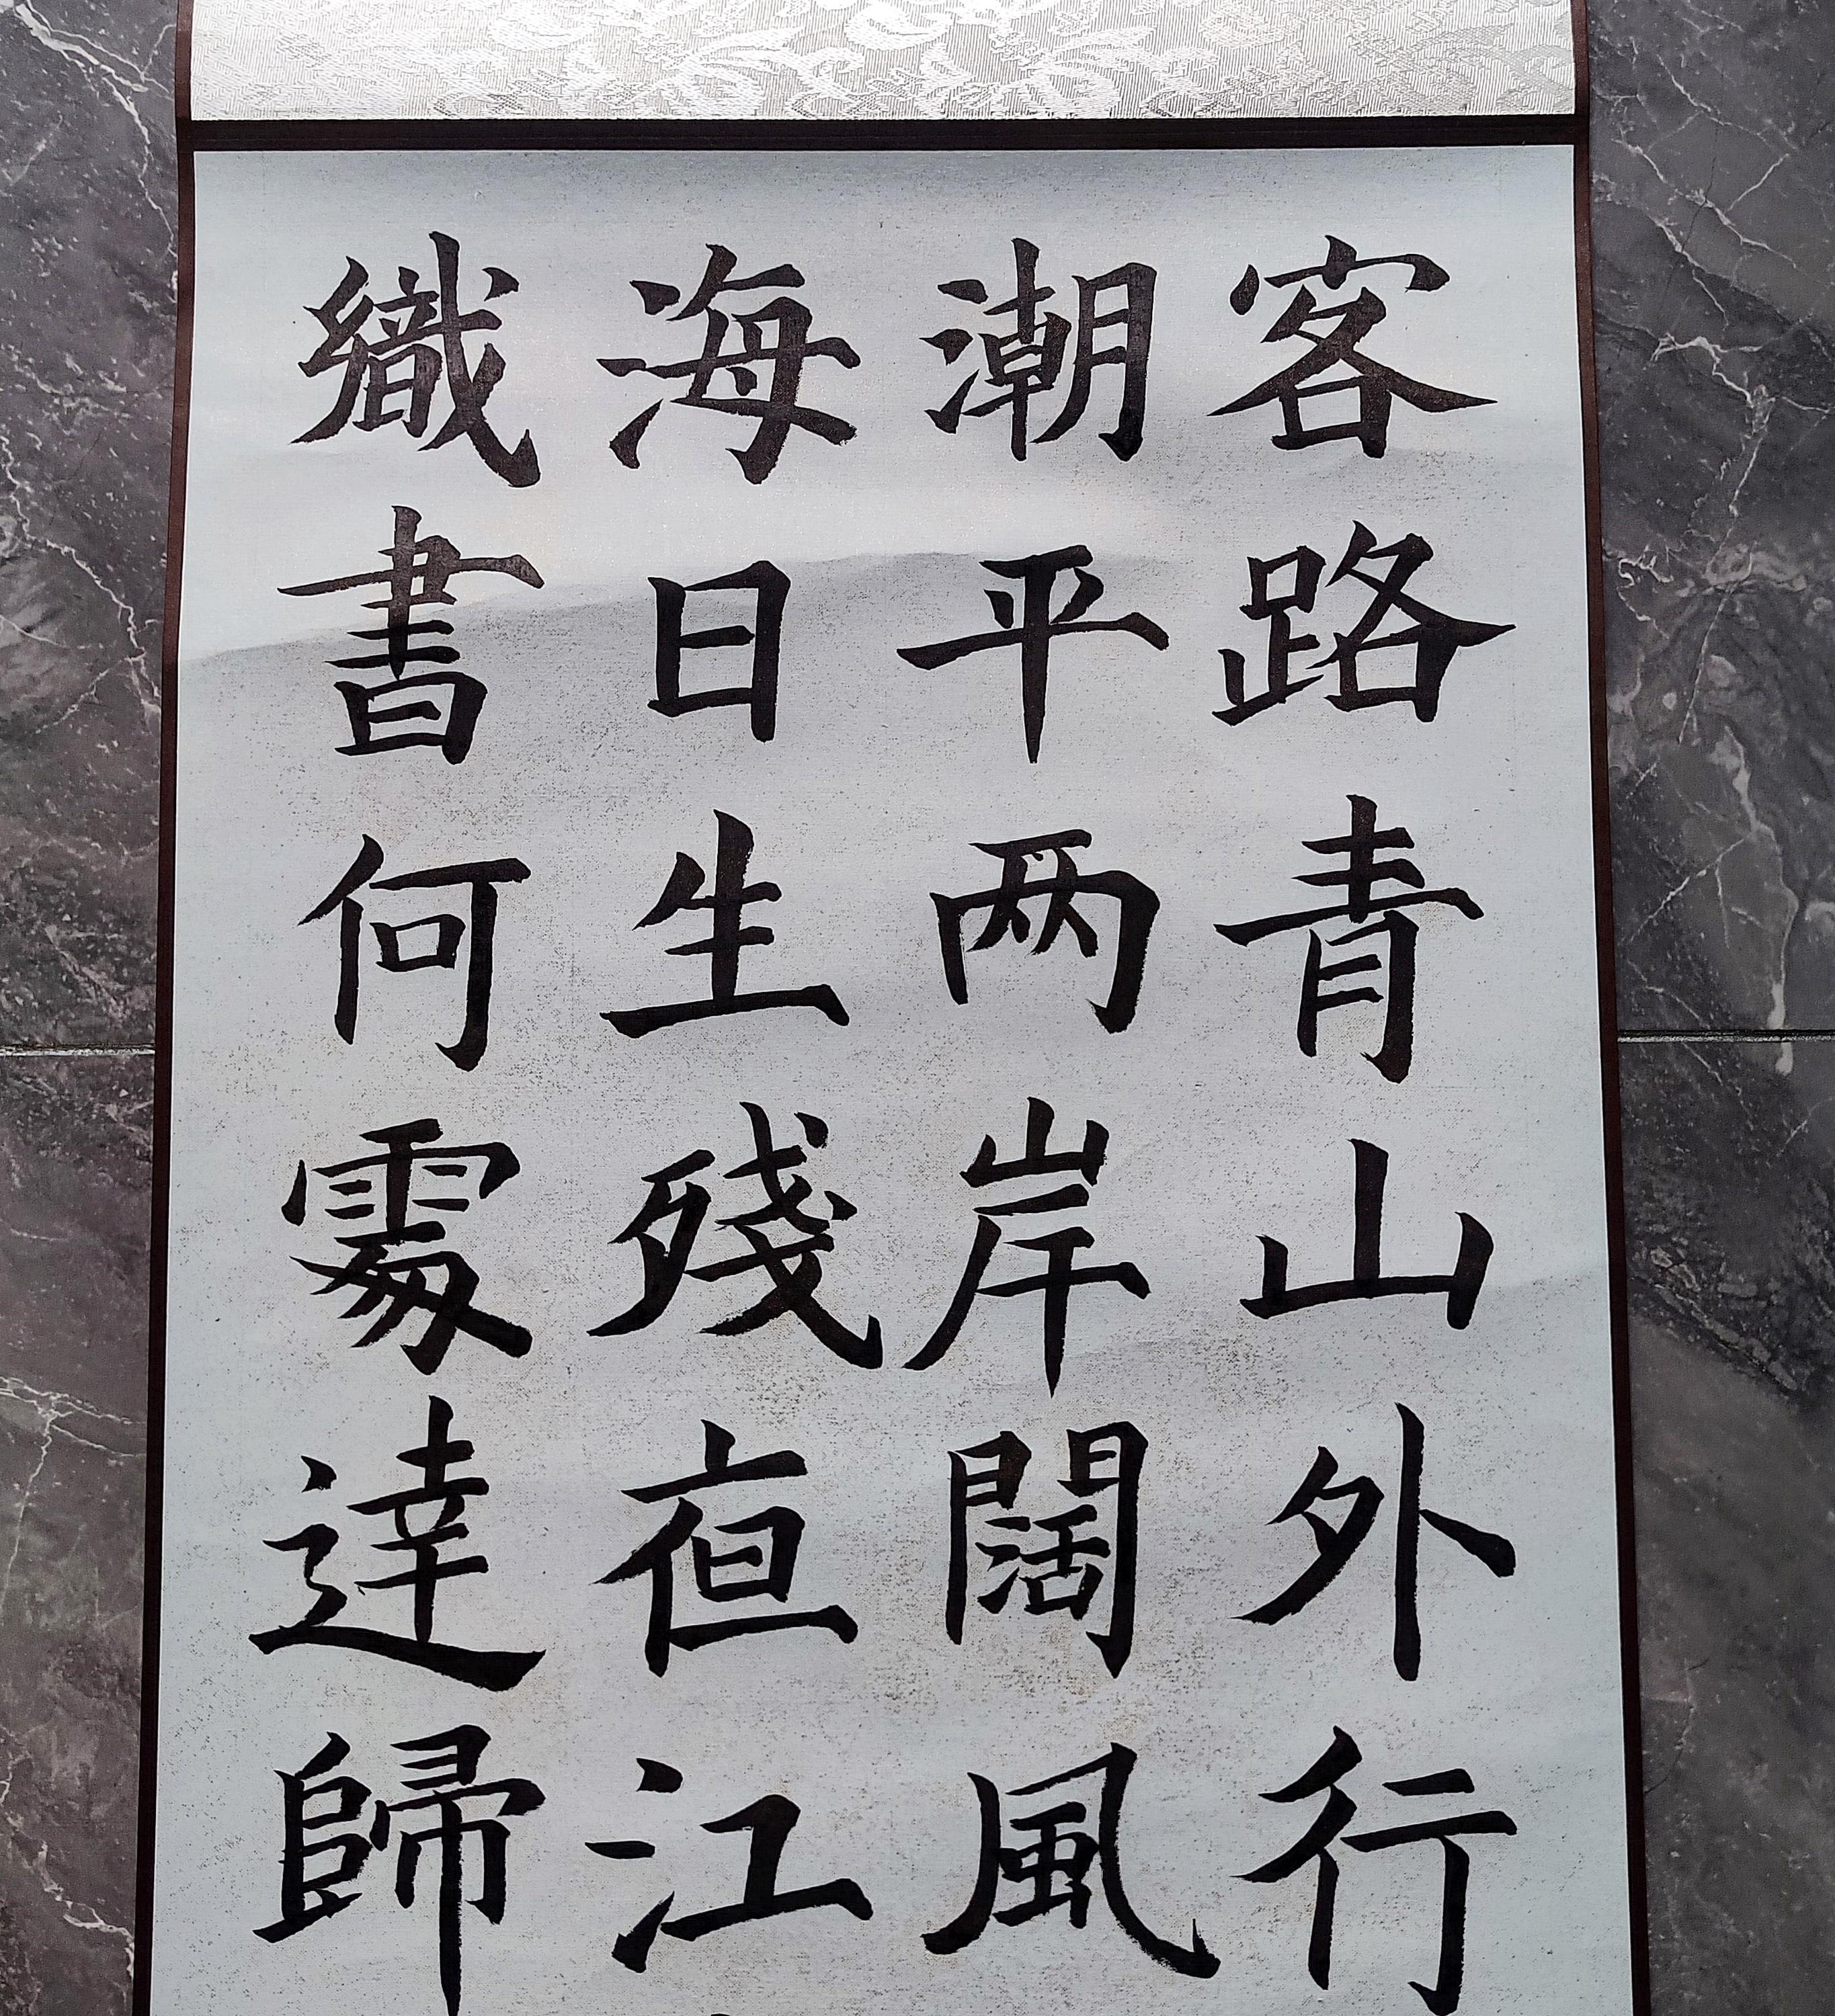 客路青山外行
潮平两岸闊風
海日生殘亱江
織書何處達歸